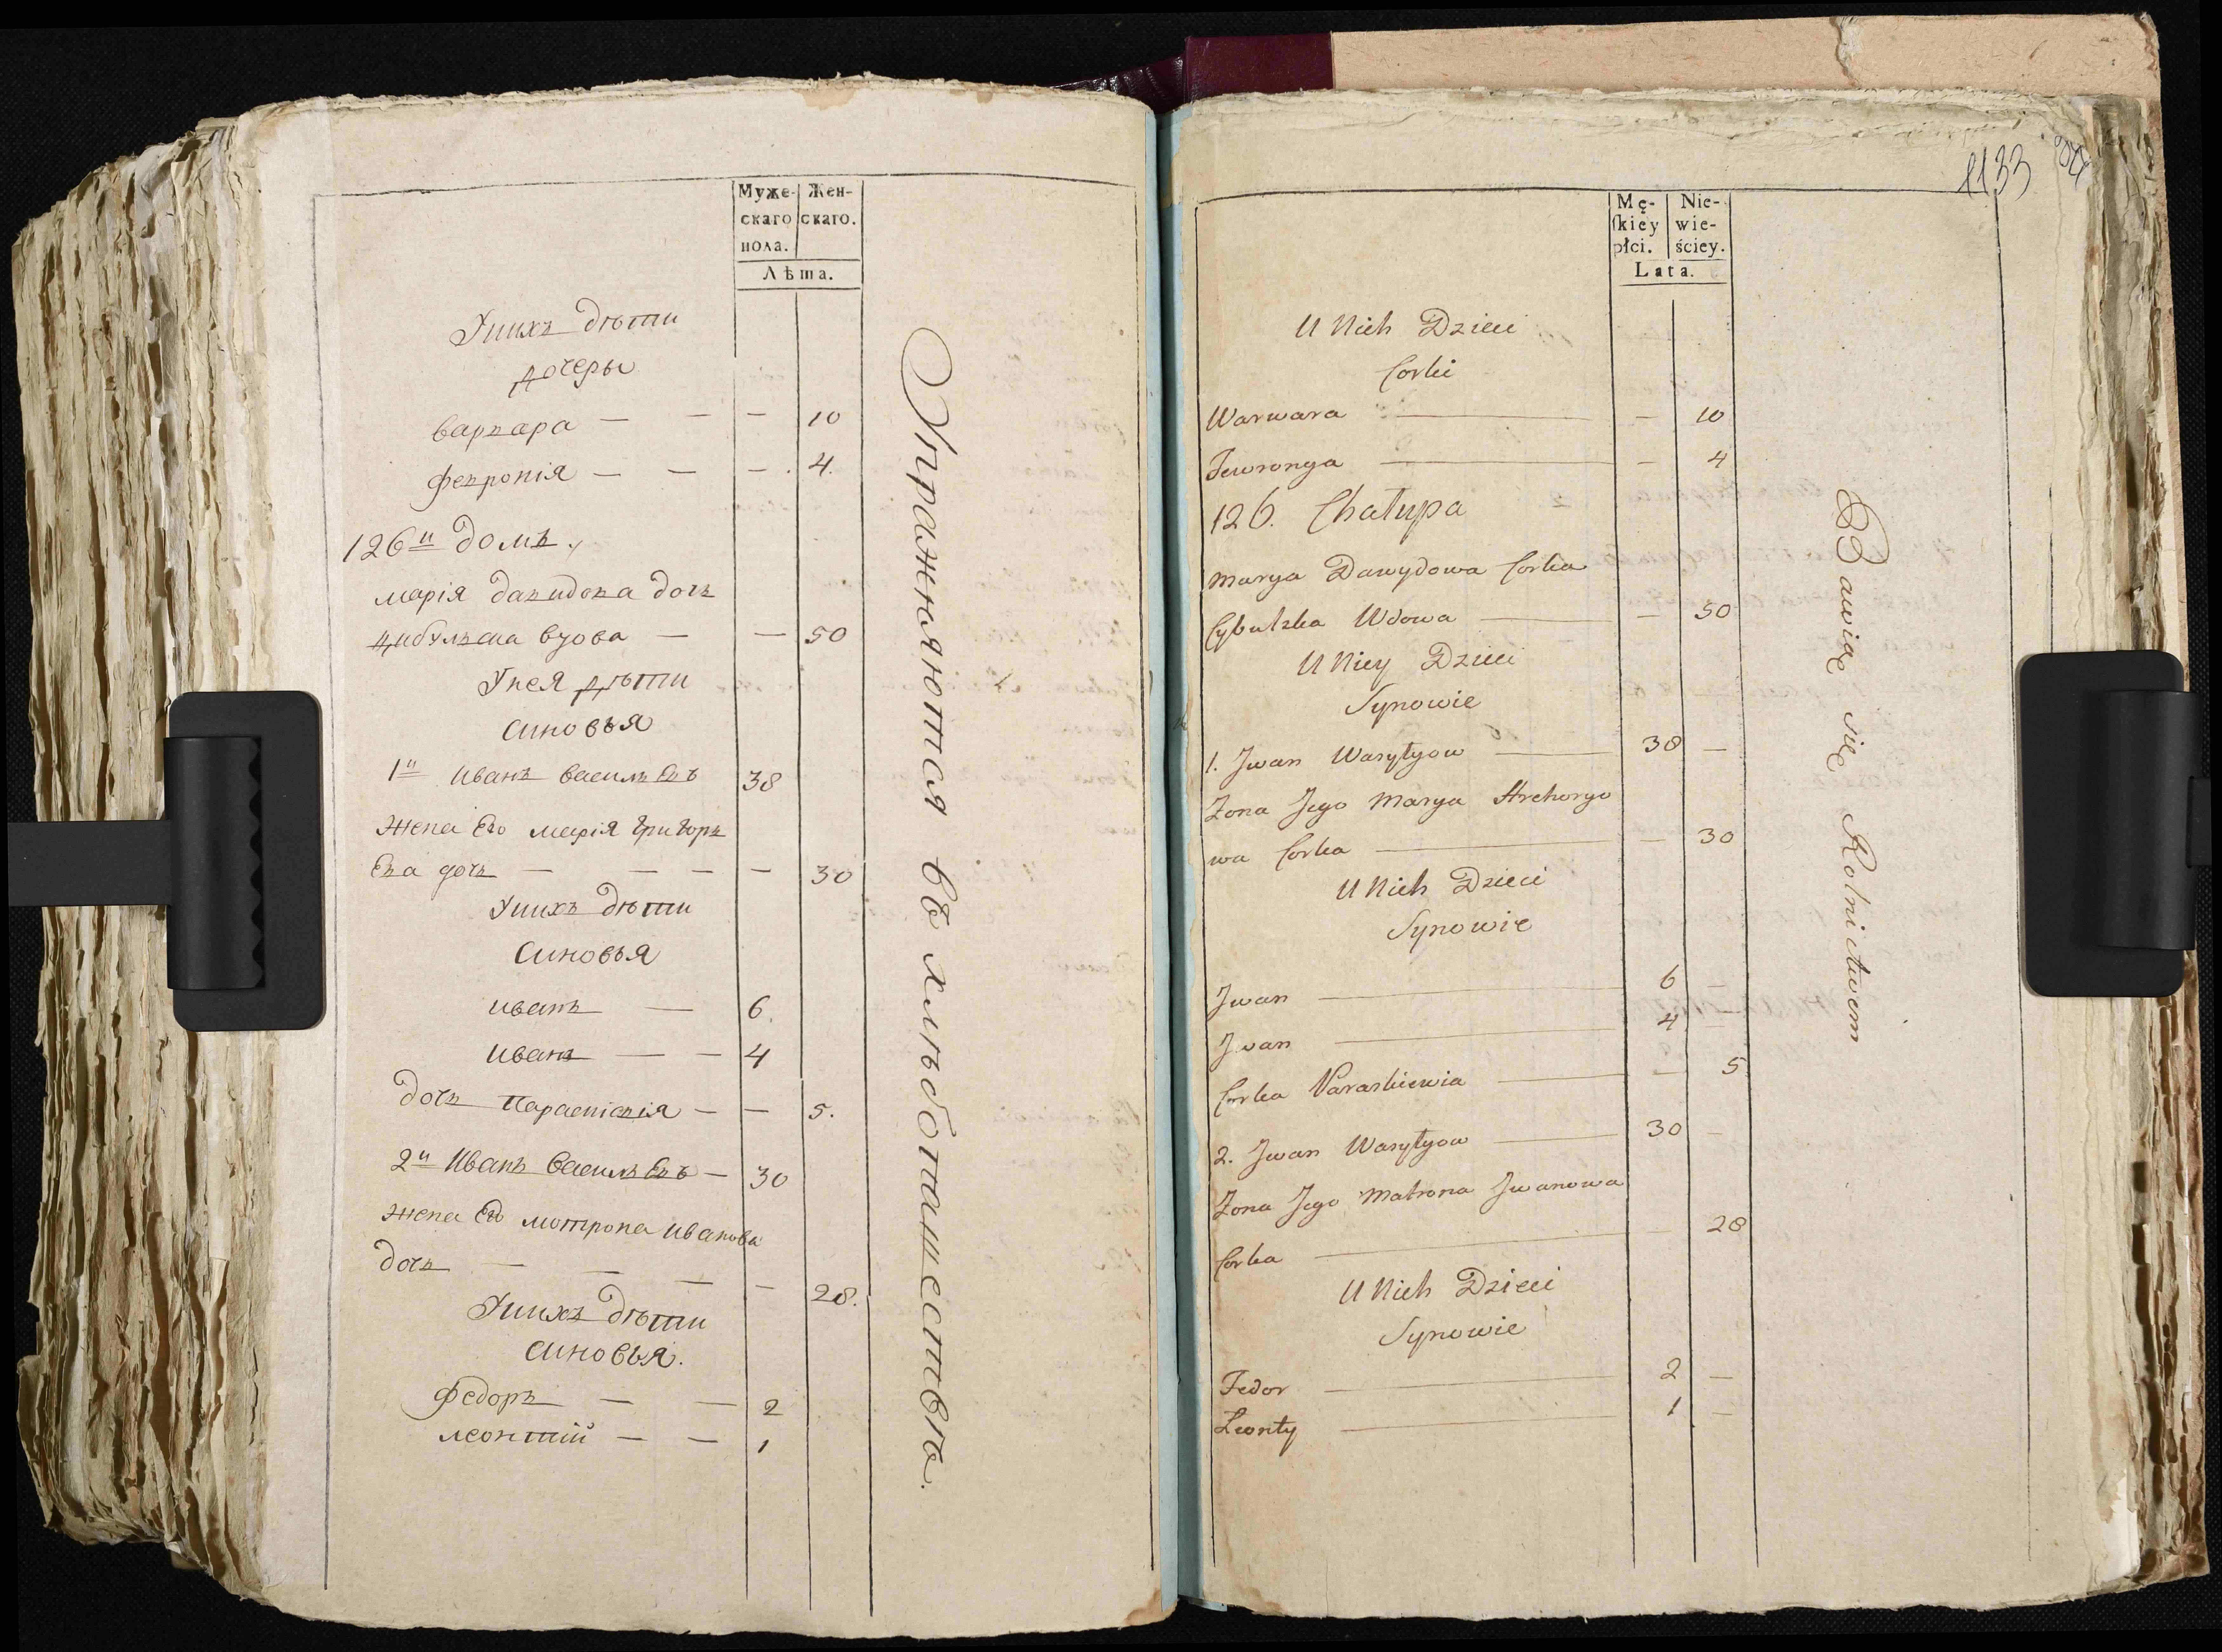 Муже-
скаго
пола.
Жен-
скаго.
Лѣта.
Унихъ дѣти
дочеры
варвара — — — 10
февронія — — — 4.
126й домъ.
марія давидова дочь
цибулска вдова — — 50
Унея дѣти
синовья
1й иванъ василь евъ 38
жена Его марія григорь
Ева дочь — — — — 30
Унихъ дѣти
синовья
иванъ — 6.
иванъ — — 4
дочь параскевія — — 5.
2й Иванъ василь Евъ — 30
жена Его мотрона иванова
дочь — — — — 28.
Унихъ дѣти
синовья.
федоръ — — 2
леонтій — — 1
Упражняются въ хлѣбопашествѣ.
1133
Mę-
ſkiey
płci.
Nie-
wie-
ściey.
Lata.
U Nich Dzieci
Corki
Warwara — — 10
Fewronya — — 4
126. Chałupa
Marya Dawydowa Corka
Cybulska Wdowa — — 50
U Niey Dzieci
Synowie
1. Jwan Wasylyow — 38 —
Zona Jego Marya Hrehorgo
wa Corka — — 30
U Nich Dzieci
Synowie
Jwan — 6 —
Jwan — 4 —
Corka Paraskiewia — — 5
2. Jwan Wasylyow — 30 —
Zona Jego Matrona Jwanowa
Corka — — 28
U Nich Dzieci
Synowie
Fedor — 2 —
Leonty — 1 —
Bawią się Rolnictwem